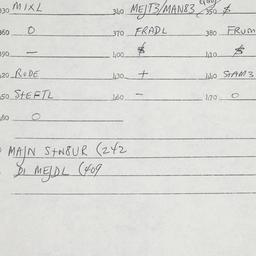 330 MIXL 340 MEJT3/MAN83 350 $
360 O 370 FRADL 380 FRUM
390 – 400 $ 410 $
420 RODE 430 + 440 STAM3
450 StEFTL 460 – 470 O
480 O
MAJN StN8UR (242
DI MEJDL (409